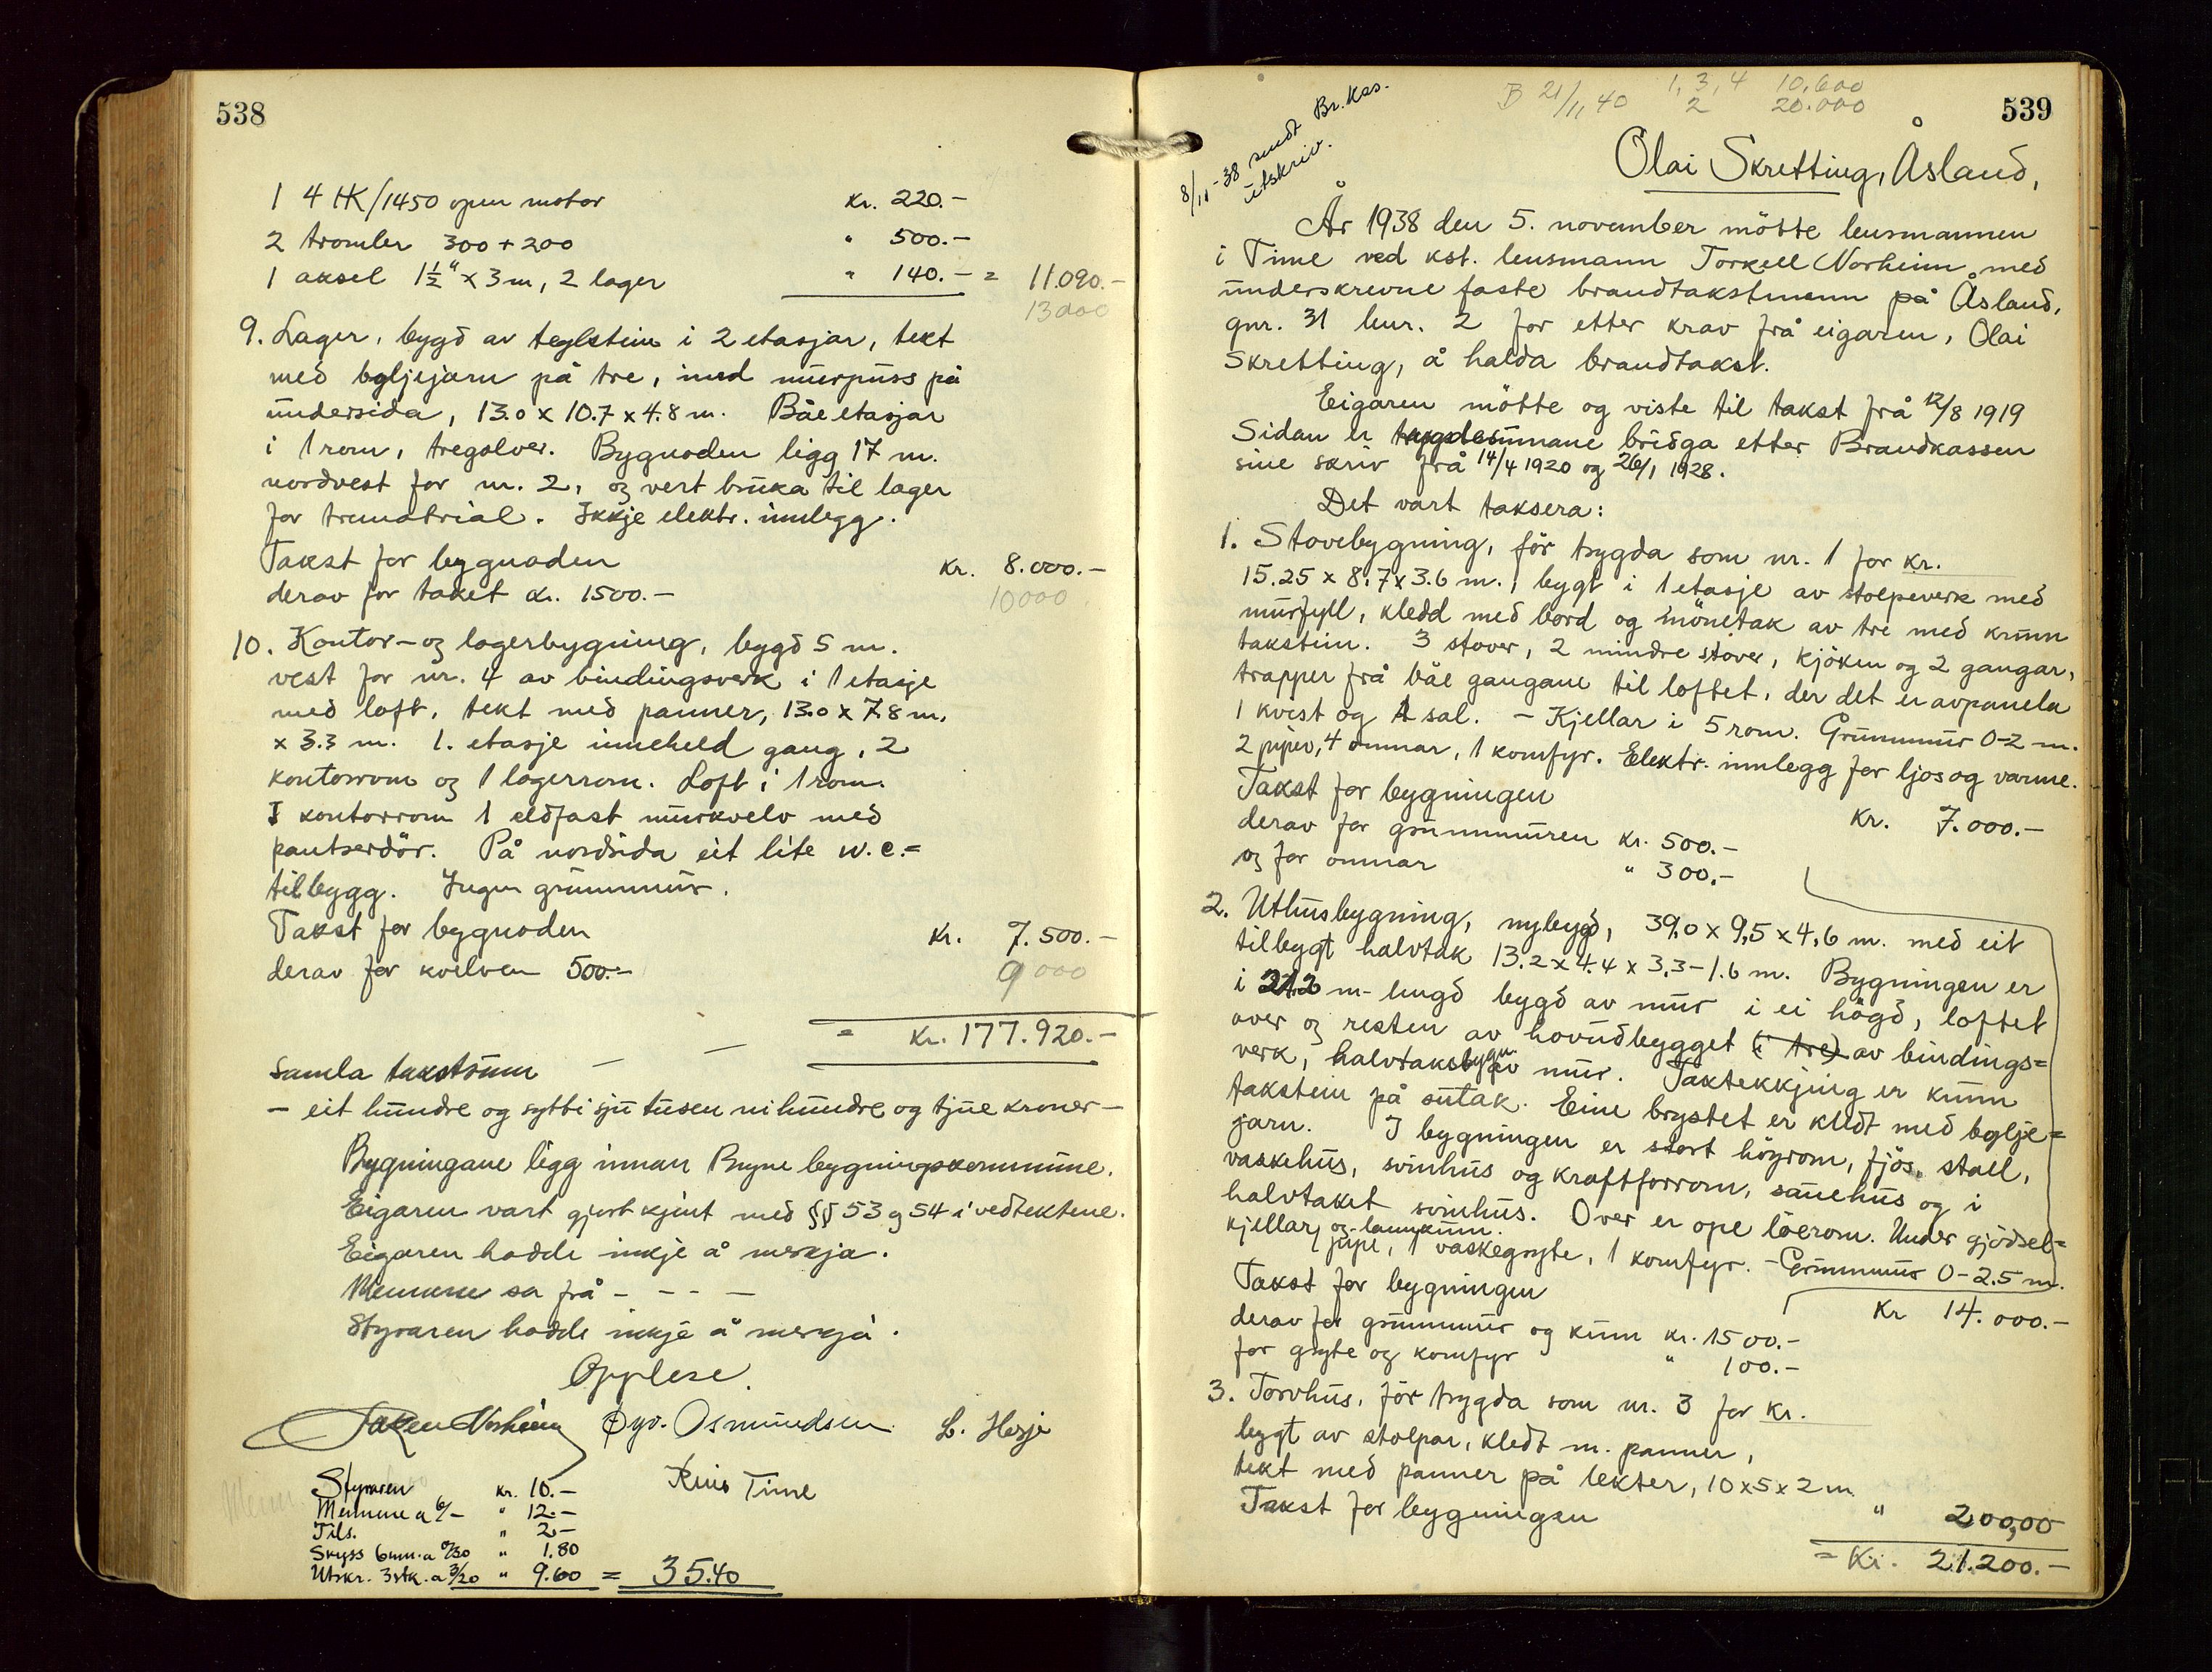 538
1 4 HK/1450 open motor kr. 220.-
2 tromler 300+200 " 500.-
1 aksel 1½" x 3 m, 2 lager " 140.- = 11.090.-
13000
9. Lager, bygd av teglstein i 2 etasjar, tekt
med bylgjejarn på tre, med murpuss på
undersida, 13.0 x 10.7 x 4.8 m. Båe etasjar
i 1 rom, tregolver. Bygnaden ligg 17 m.
nordvest for nr. 2, og vert bruka til lager
for trematrial. Ikkje elektr. innlegg.
Takst for bygnaden kr. 8.000.-
derav for taket kr. 1500.- 10000
10. Kontor- og lagerbygning, bygd 5 m.
vest for nr. 4 av bindingsverk i 1 etasje
med loft, tekt med panner, 13.0 x 7.8 m.
x 3.3 m. 1. etasje inneheld gang, 2
kontorrom og 1 lagerrom. Loft i 1 rom.
I kontorrom 1 eldfast murkvelv med
pantserdör. På nordsida eit lite w.c.=
tilbygg. Ingen grunnmur.
Takst for bygnaden kr. 7.500.-
derav for kvelven 500.- 9000
= Kr. 177.920.-
Samla takstsum — —
- eit hundre og sytti sju tusen ni hundre og tjue kroner -
Bygningane ligg innan Bryne bygningskommune.
Eigaren vart gjort kjent med §§ 53 og 54 i vedtektene.
Eigaren hadde inkje å merkja.
Mennene sa frå - - - -
Styraren hadde inkje å merkja.
Opplese.
Torkell Norheim Øyv. Osmundsen L. Herje
Time
Styraren kr. 10.-
Mennene a 6/- " 12.-
Tils. " 2.-
Skyss 6 km. a 0/30 " 1.80
Utskr. 3 stk. a 3/20 " 9.60 = 35.40
539
B 21/11 40 1, 3, 4 10.600
2 20.000
8/11-38 sendt Br.kas.
utskriv.
Olai Skretting, Åsland,
År 1938 den 5. november mötte lensmannen
i Time ved kst. lensmann Torkell Norheim med
underskrevne faste brandtakstmenn på Åsland,
gnr. 31 bnr. 2 for etter krav frå eigaren, Olai
Skretting, å halda brandtakst.
Eigaren mötte og viste til takst frå 12/8 1919
Sidan er trygdesumane bridga etter Brandkassen
sine skriv frå 14/4 1920 og 26/1 1928.
Det vart taksera:
1. Stovebygning, för trygda som nr. 1 for kr.
15.25 x 8.7 x 3.6 m., bygt i 1 etasje av stolpeverk med
murfyll, kledd med bord og mönetak av tre med krum
takstein. 3 stover, 2 mindre stover, kjöken og 2 gangar,
trapper frå båe gangane til loftet, der det er avpanela
1 kvist og 1 sal. - Kjellar i 5 rom. Grunnmur 0-2 m.
2 piper, 4 omnar, 1 komfyr. Elektr. innlegg for ljos og varme.
Takst for bygningen kr. 7.000.-
derav for grunnmuren kr. 500.-
og for omnar " 300.-
2. Uthusbygning, nybygd, 39,0 x 9,5 x 4,6 m. med eit
tilbygt halvtak 13.2 x 4.4 x 3.3-1.6 m. Bygningen er
i 21.2 m- lengd bygd av mur i ei högd, loftet
over og resten av hovudbygget (i tre) av bindings=
verk, halvtaksbygn. av mur. Taktekkjing er krum
takstein på sutak. Eine brystet er kledt med bylgje=
jarn. I bygningen er stort höyrom, fjös, stall,
vaskehus, svinhus og kraftforrom, sauehus og i
halvtaket svinhus. Over er ope löerom. Under gjödsel=
kjellar og landkum.
pipe, 1 vaskegryte, 1 komfyr. - Grunnmur 0-2.5 m.
Takst for bygningen Kr 14.000.-
derav for grunnmur og kum kr. 1500.-
for gryte og komfyr " 100.-
3. Torvhus, för trygda som nr. 3 for kr.
bygt av stolpar, kledt m. panner,
tekt med panner på lekter, 10 x 5 x 2 m
Takst for bygningen " 200,00
= Kr. 21.200.-